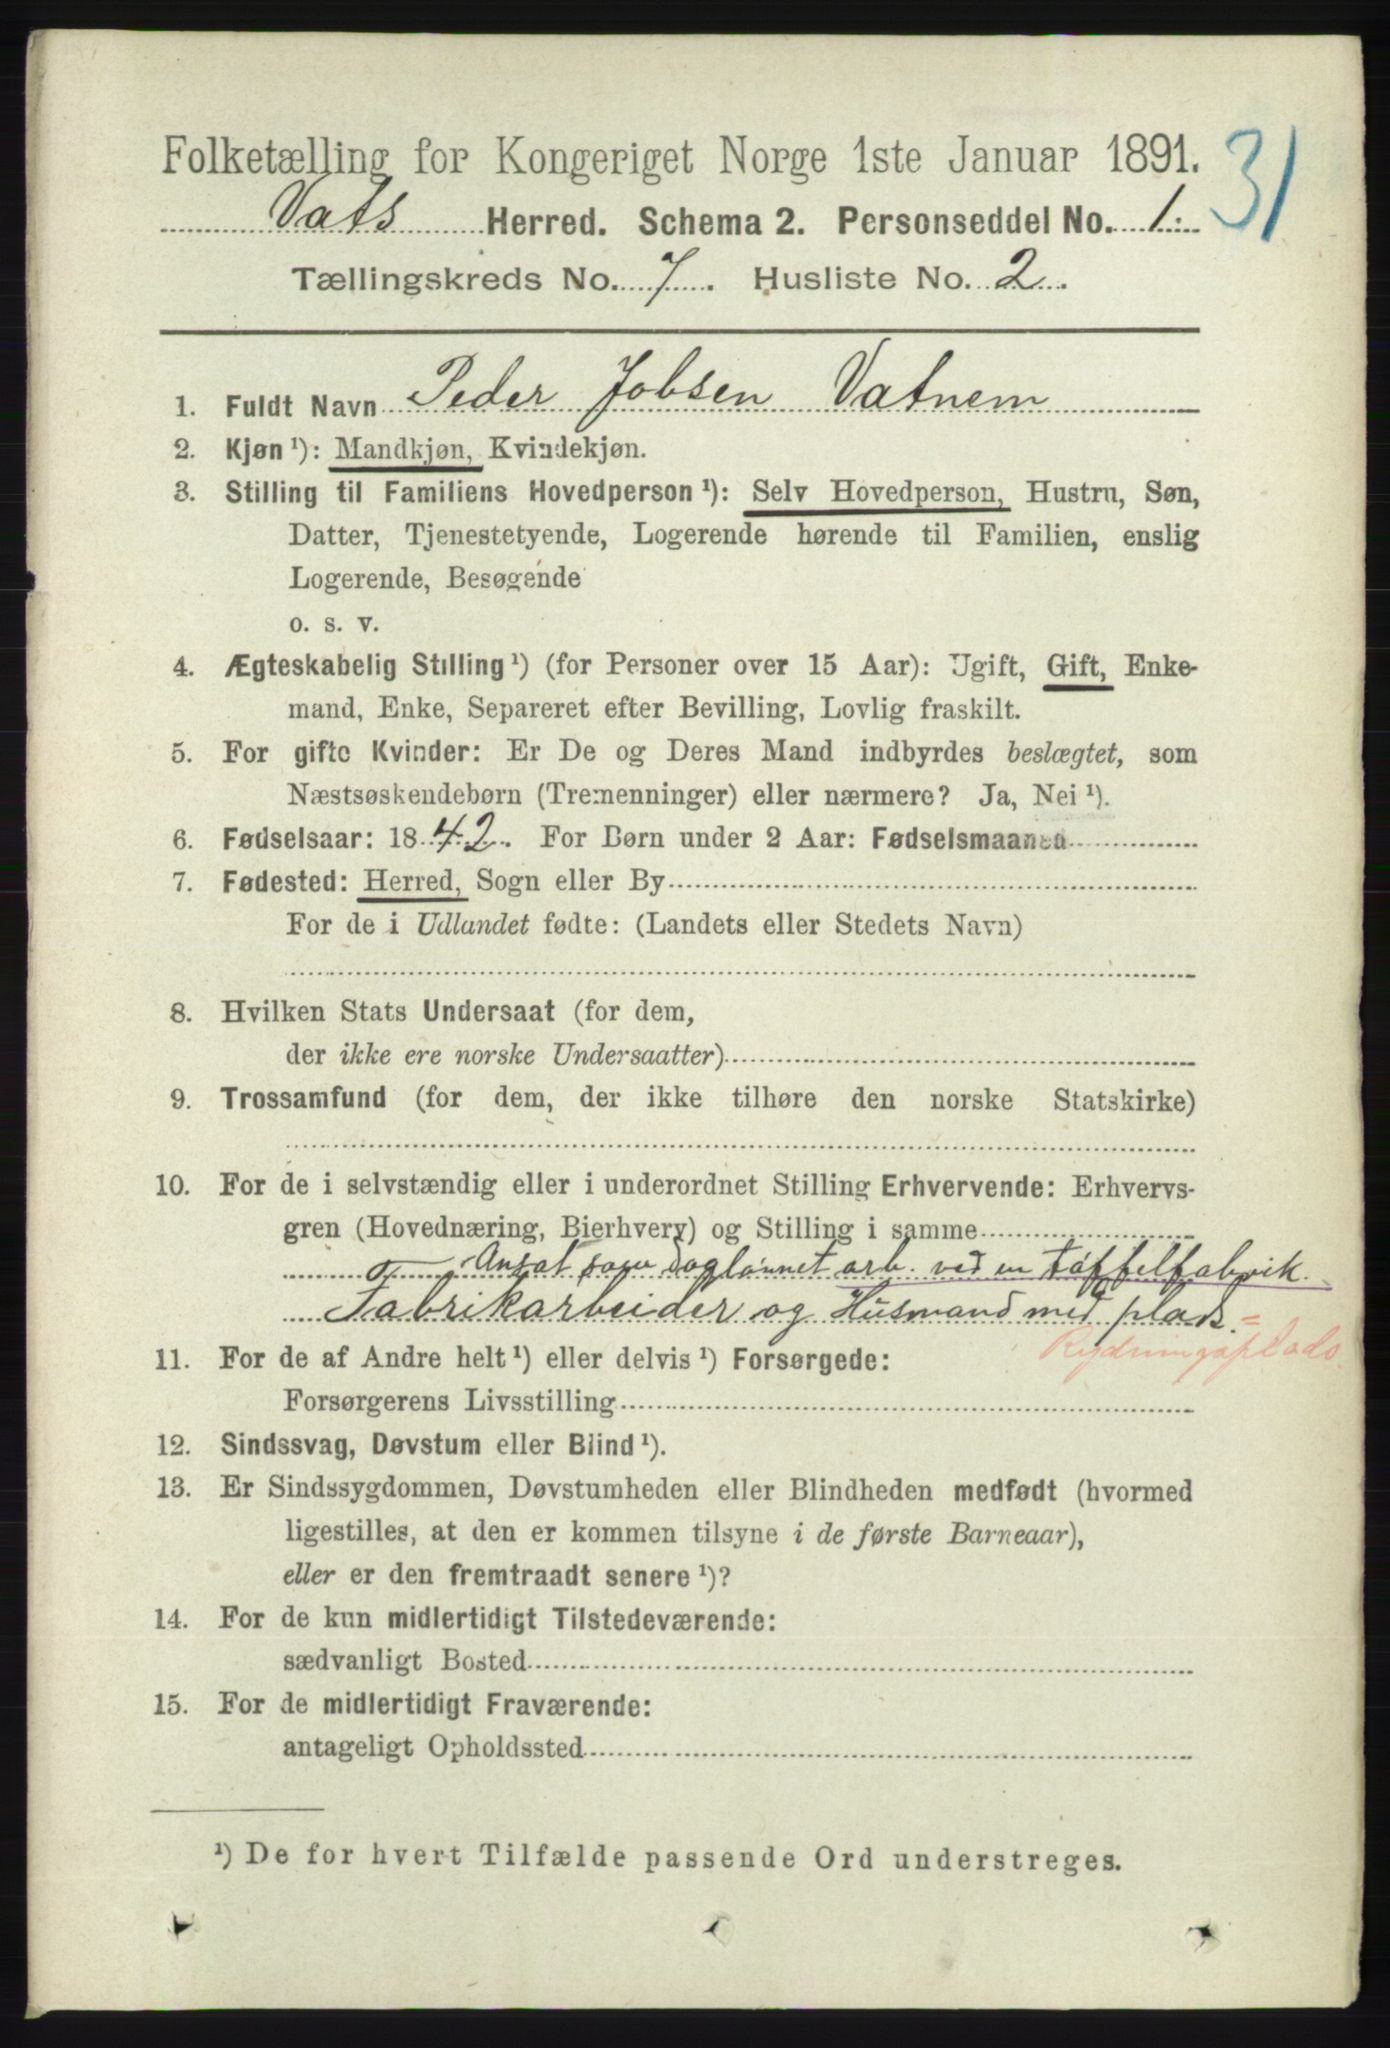 Folketælling for Kongeriget Norge 1ste Januar 1891.
31
Vats Herred. Schema 2. Personseddel No. 1.
Tællingskreds No. 7. Husliste No. 2.
1. Fuldt Navn Peder Jobsen Vatnem
2. Kjøn ¹): Mandkjøn, Kvindekjøn.
3. Stilling til Familiens Hovedperson ¹): Selv Hovedperson, Hustru, Søn,
Datter, Tjenestetyende, Logerende hørende til Familien, enslig
Logerende, Besøgende
o. s. v.
4. Ægteskabelig Stilling ¹) (for Personer over 15 Aar): Ugift, Gift, Enke-
mand, Enke, Separeret efter Bevilling, Lovlig fraskilt.
5. For gifte Kvinder: Er De og Deres Mand indbyrdes beslægtet, som
Næstsøskendebørn (Tremenninger) eller nærmere? Ja, Nei ¹).
6. Fødselsaar: 1842. For Børn under 2 Aar: Fødselsmaaned
7. Fødested: Herred, Sogn eller By
For de i Udlandet fødte: (Landets eller Stedets Navn)
8. Hvilken Stats Undersaat (for dem,
der ikke ere norske Undersaatter)
9. Trossamfund (for dem, der ikke tilhøre den norske Statskirke)
10. For de i selvstændig eller i underordnet Stilling Erhvervende: Erhvervs-
gren (Hovednæring, Bierhverv) og Stilling i samme
Ansat som daglønnet arb. ved en tøffelfabrik.
Fabrikarbeider og Husmand med plads. =
Rydningsplads.
11. For de af Andre helt ¹) eller delvis ¹) Forsørgede:
Forsørgerens Livsstilling
12. Sindssvag, Døvstum eller Blind ¹).
13. Er Sindssygdommen, Døvstumheden eller Blindheden medfødt (hvormed
ligestilles, at den er kommen tilsyne i de første Barneaar),
eller er den fremtraadt senere ¹)?
14. For de kun midlertidigt Tilstedeværende:
sædvanligt Bosted
15. For de midlertidigt Fraværende:
antageligt Opholdssted
¹) De for hvert Tilfælde passende Ord understreges.